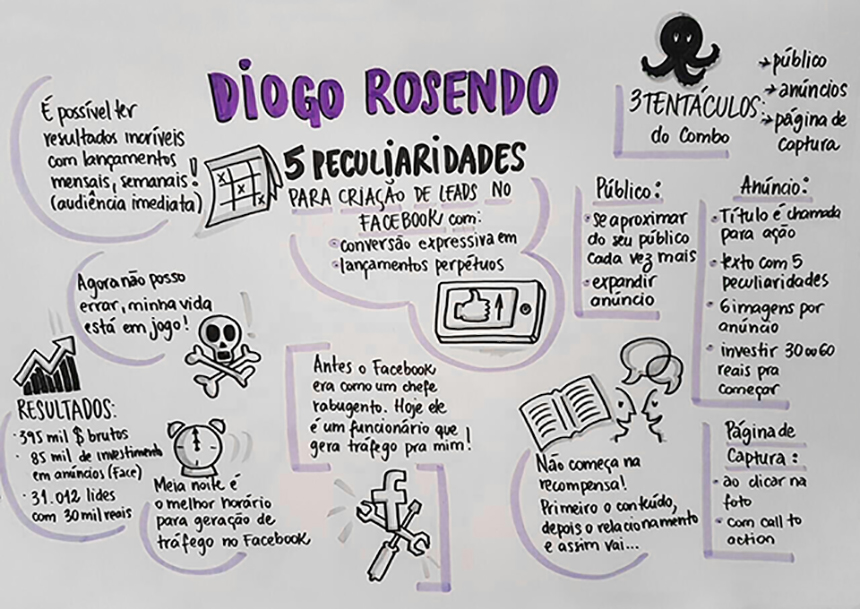 DIOGO ROSENDO
5 PECULIARIDADES
PARA CRIAÇÃO DE LEADS NO
FACEBOOK com:
conversão expressiva em
lançamentos perpétuos
É possível ter
resultados incríveis
com lançamentos
mensais, semanais!
(audiência imediata)
3 TENTÁCULOS:
do Combo
→ público
→ anúncios
→ página de
captura
Público:
• se aproximar
do seu público
cada vez mais
• expandir
anúncio
Anúncio:
• Título é chamada
para ação
• texto com 5
peculiaridades
• 6 imagens por
anúncio
• investir 30 ou 60
reais pra
começar
Agora não posso
errar, minha vida
está em jogo!
RESULTADOS:
• 395 mil $ brutos
• 85 mil de investimento
em anúncios (Face)
• 31.012 lides
com 30 mil reais
Meia noite é
o melhor horário
para geração de
tráfego no Facebook
Antes o Facebook
era como um chefe
rabugento. Hoje ele
é um funcionário que
gera tráfego pra mim!
f
Não começa na
recompensa!
Primeiro o conteúdo,
depois o relacionamento
e assim vai...
Página de
Captura:
• ao clicar na
foto
• com call to
action